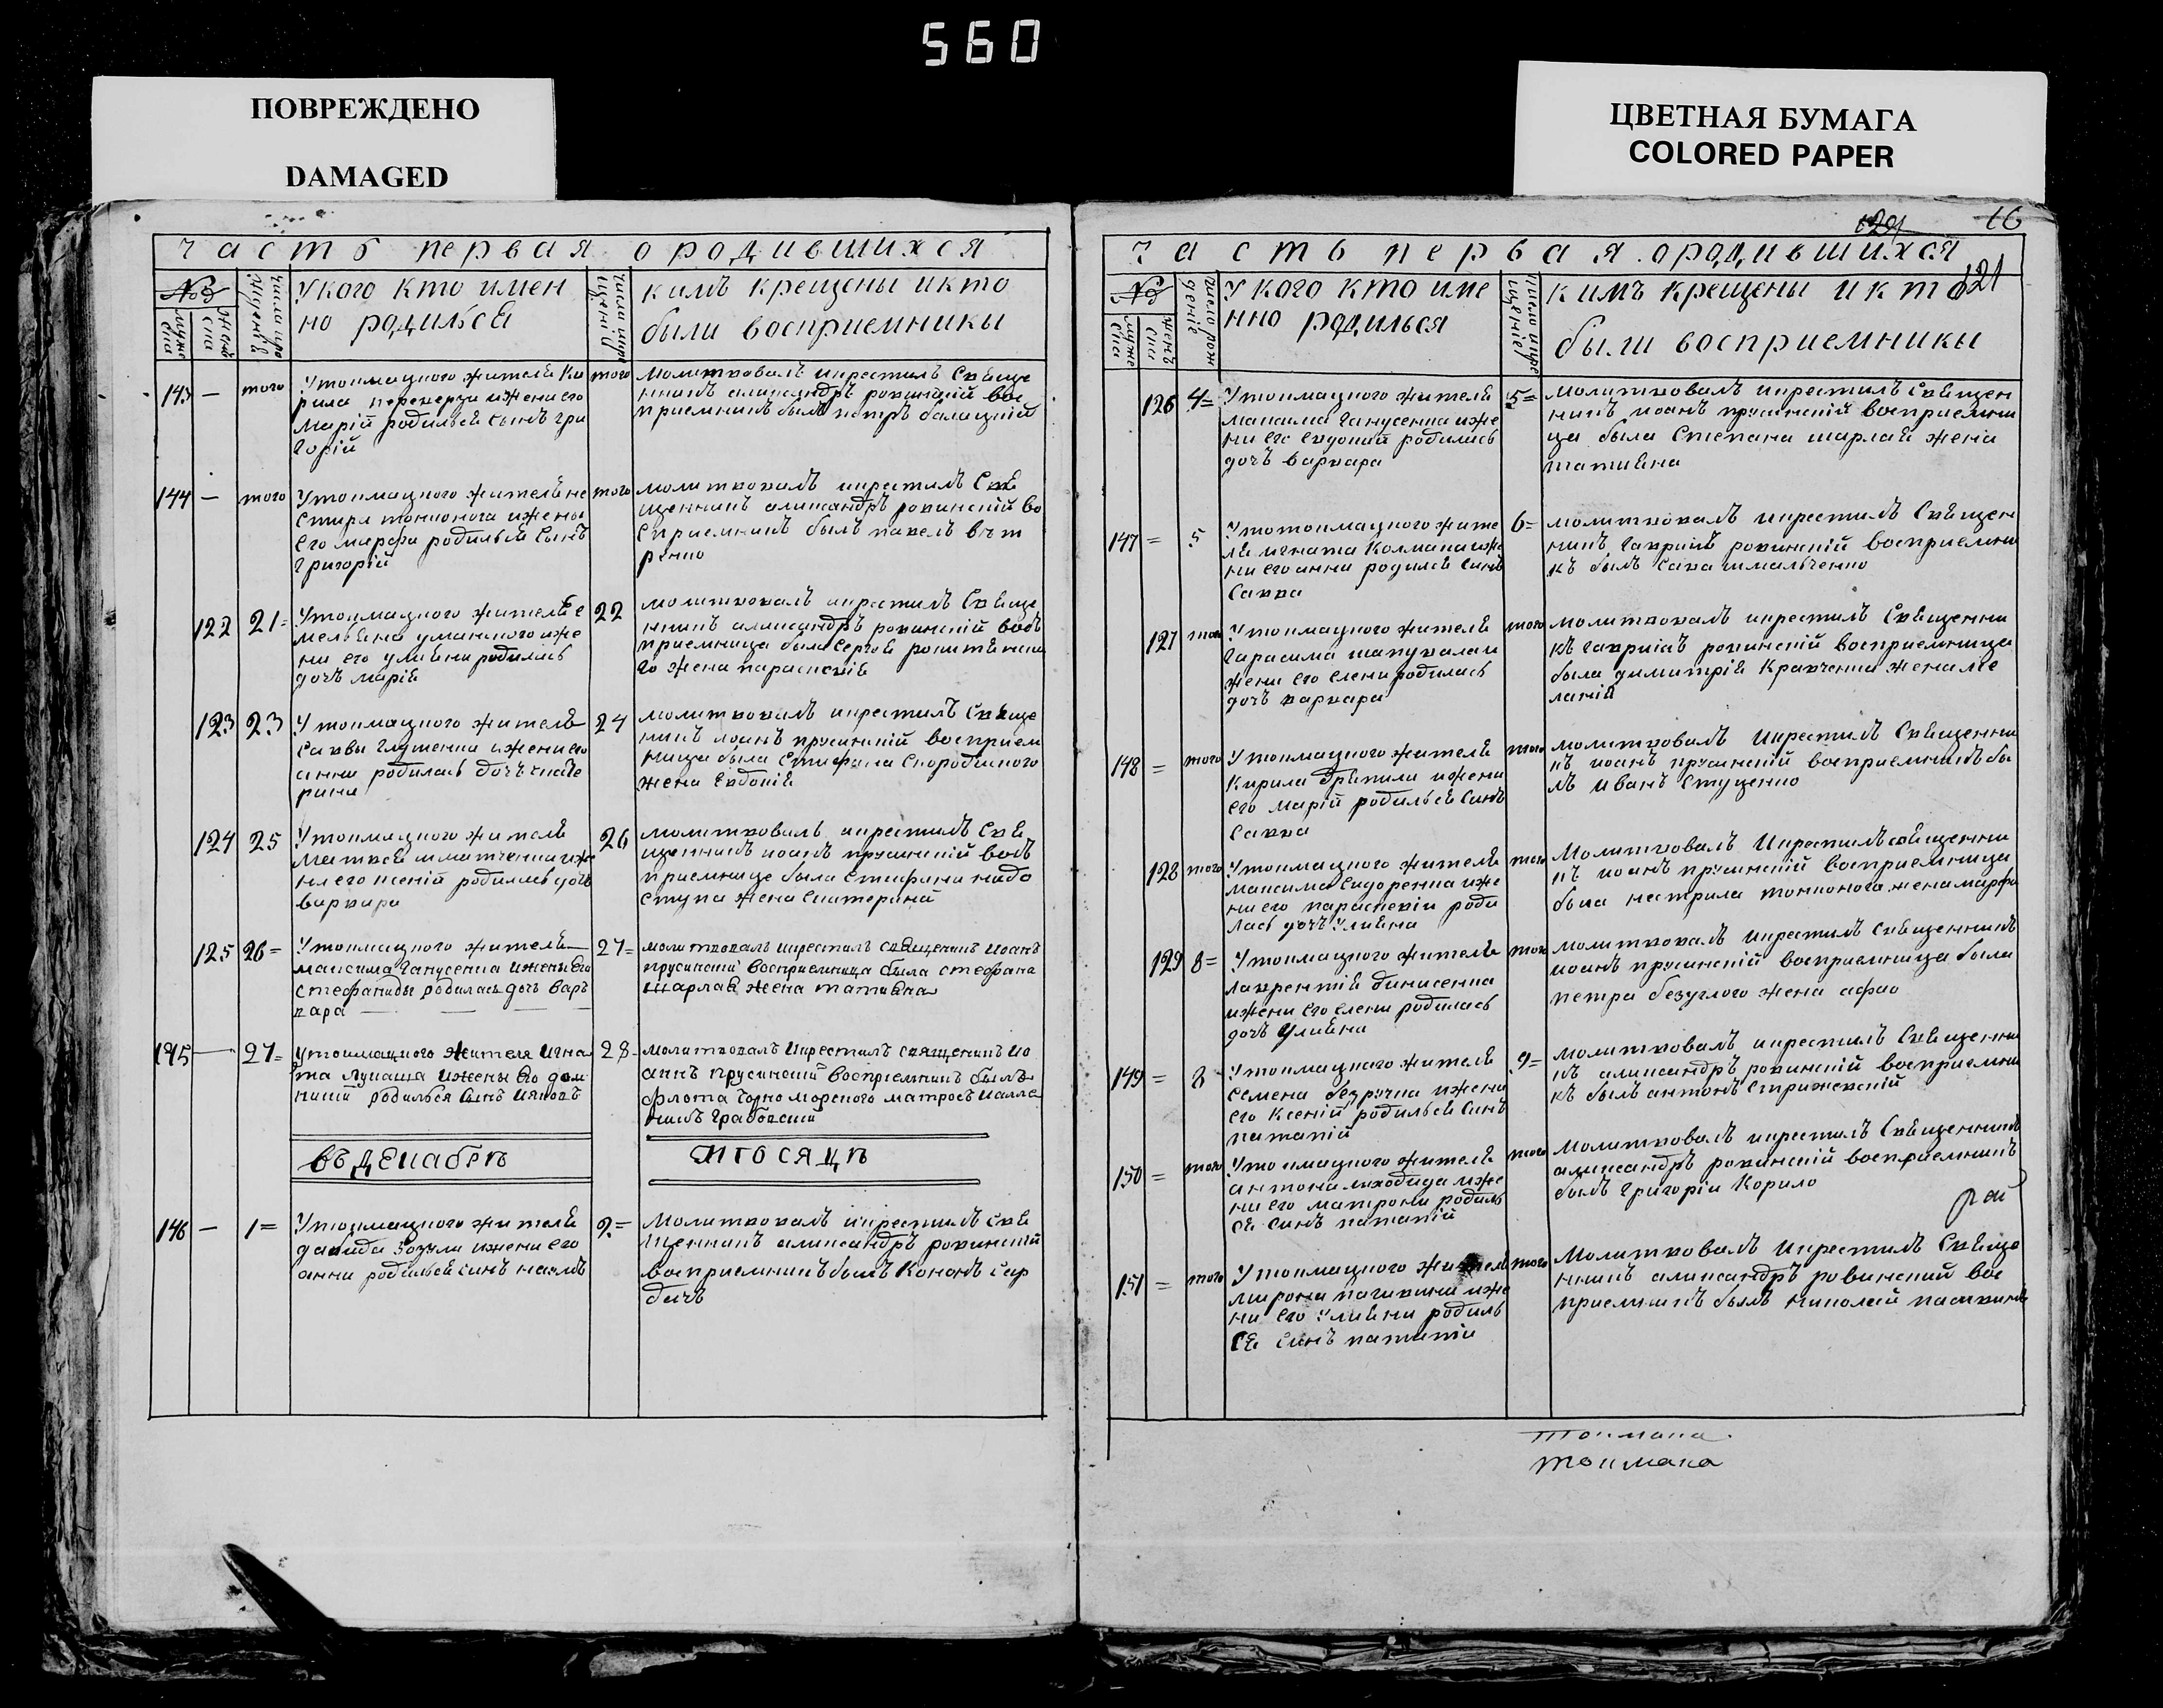 560
ПОВРЕЖДЕНО
DAMAGED
ЦВЕТНАЯ БУМАГА
COLORED PAPER
часть первая ородившихся
№
У кого кто имен
но родилься
кимъ крещены икто
были восприемники
143 — того
Утокмацкого жителя Ки
рила
ижени его
Марiй родилься сынъ гри
горiй
того
молитвовалъ икрестилъ Свяще
нникъ аликсандръ ровинскiй вос
приемникъ былъ петръ
144 — того
Утокмацкого жителя не
стира тонконога ижены
его марфи родилься сынъ
григорiй
того
молитвовалъ икрестилъ Свя
щенникъ аликсандръ ровинскiй во
сприемникъ былъ павелъ вѣт
ренко
122 21=
Утокмацкого жителя е
мелвяна уманского иже
ни его улияни родилась
дочъ марiя
22
молитвовалъ икрестилъ Свяще
нникъ аликсандръ ровинскiй восъ
приемница была Сергея
го жена параскевiя
123 23
Утокмацкого жителя
Саввы глущенка ижени его
анни родилась дочъ екате
рина
24
молитвовалъ икрестилъ Свяще
никъ иоанъ прусинскiй восприем
ница была Стефана Скородиного
жена Евдокiя
124 25
Утокмацкого жителя
Матвея шматченка иже
ни его ксенiй родилась дочъ
варвара
26
молитвовалъ икрестилъ Свя
щенникъ иоанъ прусинскiй восъ
приемница была Стефана недо
ступа жена екатерина
125 26=
Утокмацкого жителя
максима Ганусенка ижены его
стефаниды родилась дочь варъ
вара
27=
молитвовалъ икрестилъ священикъ иоанъ
прусинскiй восприемница была стефана
шарлая жена татияна
145 — 27=
утокмацкого жителя игна
та лупаша ижены его дом
никiи родилься сынъ ияковъ
28
молитвовалъ икрестилъ священикъ ио
аннъ прусинскiй восприемникъ былъ
флота Чорноморского матросъ калле
никъ Грабовскiй
въ декабрѣ
мѣсяцѣ
146 — 1=
Утокмацкого жителя
давида Зозули ижени его
анни родилься синъ наумъ
2=
Молитвовалъ икрестилъ Свя
щенникъ аликсандръ ровинскiй
восприемникъ былъ Кононъ Сер
дичъ
16
121
часть первая ородившихся
№
У кого кто име
нно родилься
кимъ крещены и кто
были восприемники
126 4=
Утокмацкого жителя
максима Ганусенка иже
ни его евдокий родилась
дочъ варвара
5=
молитвовалъ икрестилъ Священ
никъ иоанъ прусинскiй восприемни
ца была Степана шарлая жена
татияна
147 = 5
Утотокмацкого жите
ля игната Колмака иже
ни его анни родился синъ
Савва
6=
молитвовалъ икрестилъ Священ
никъ гавриилъ ровинскiй восприемни
къ былъ Сава шмальченко
127 того
Утокмацкого жителя
Гарасима шаповала и
жени его елени родилась
дочъ варвара
того
молитвовалъ икрестилъ Священни
къ гаврiилъ ровинскiй восприемница
была димитрiя Кравченка жена ме
ланiя
148 = того
Утокмацкого жителя
Кирила ижени
его марiй родилься синъ
Савва
того
молитвовалъ икрестилъ Священни
къ иоанъ прусинскiй восприемникъ бы
лъ иванъ Стуценко
128 того
Утокмацкого жителя
максима Сидоренка иже
ни его параскевiи роди
лась дочъ Улияна
того
Молитвовалъ Икрестилъ священни
къ иоанъ прусинскiй восприемница
была нестрила тонконога жена марфа
129 8=
Утокмацкого жителя
лаврентiя динисенка
ижени его елени родилась
дочъ улияна
того
молитвовалъ икрестилъ священникъ
иоанъ прусинскiй восприемница была
петра безуглого жена афио
149 = 8
Утокмацкого жителя
Семена безручка ижени
его Ксенiй родилься синъ
патапiй
9=
молитвовалъ икрестилъ Священни
къ аликсандръ ровинскiй восприемни
къ былъ антонъ Стрижевскiй
150 = того
Утокмацкого жителя
антона лиходида иже
ни его матрони родиль
ся синъ патапiй
того
Молитвовалъ икрестилъ Священникъ
аликсандръ ровинскiй восприемникъ
былъ григорiи Корило
151 = того
Утокмацкого жителя
мирона пачикина иже
ни его улияни родиль
ся синъ патапiи
того
Молитвовалъ Икрестилъ Свяще
нникъ аликсандръ ровинский вос
приемникъ былъ николай
токмака
токмака